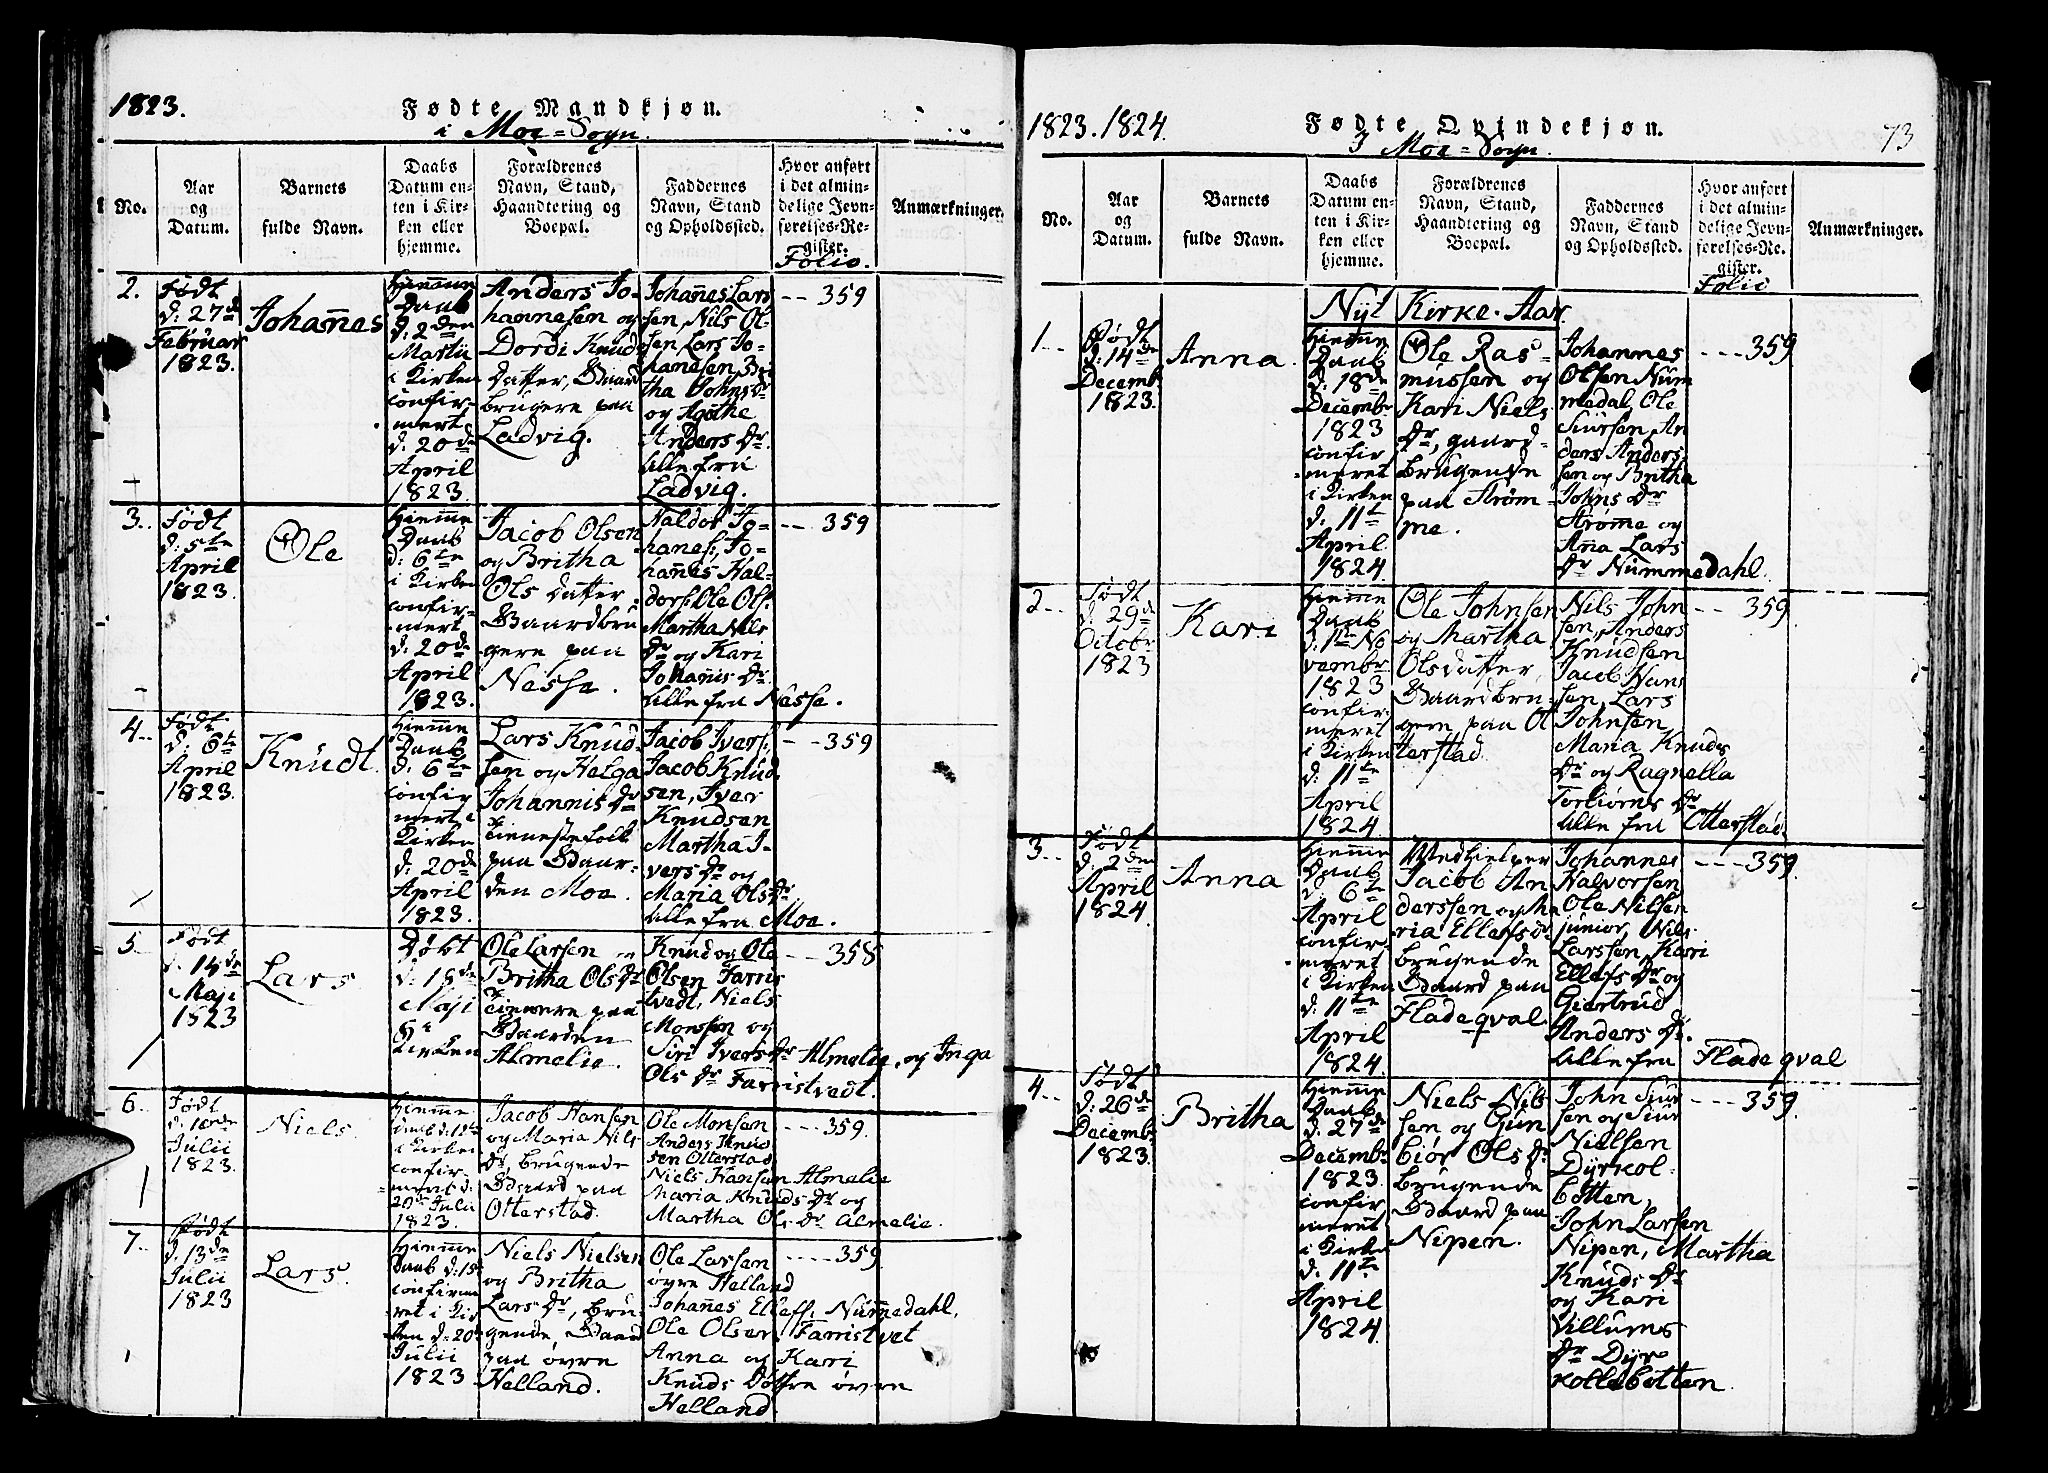 1823.
Fødte Mandkjøn.
i Moe=Sogn.
No.
Aar
og
Datum.
Barnets
fulde Navn.
Daabs
Datum en-
ten i Kir-
ken eller
hjemme.
Forældrenes
Navn, Stand,
Haandtering og
Boepæl.
Faddernes
Navn, Stand
og Opholdssted.
Hvor anført
i det almin-
delige Jevn-
førelses-Re-
gister.
Folio.
Anmærkninger.
2.
Født
d: 27de
Februar
1823.
Johannes
Hiemme
Daab
d: 2den
Martii
i Kirken
confir-
mert
d: 20de
April
1823.
Anders Jo-
hannesen og
Dordi Knuds
datter, Gaard
brugere paa
Ladvig.
Johannes Lars
sen, Nils Ol-
sen Lars Jo-
hanesen, Bri
tha Johns dr
og Agathe
Anders Dr
alle fra
Ladvig.
-- 359
3.
Født
d: 5te
April
1823.
Ole
Hiemme
Daab
d: 6te
i Kirken
confir-
mert
d: 20de
April
1823.
Jacob Olsen
og Britha
Ols datter
Gaardbru
gere paa
Nesse.
Haldor Jo-
hanes:, Jo-
hannes Hal-
dors: Ole Ols:
Martha Nils
Dr og Kari
Johanis Dr.
alle fra Nesse.
-- 359
4.
Født
d: 6te
April
1823.
Knudt
Hiemme
Daab
d: 6te
confir
mert i
Kirken
d: 20de
April
1823.
Lars Knud-
sen og Helga
Johannis Dr
Tienestefolk
paa Gaar-
den Moe.
Jacob Ivers:,
Jacob Knud
sen, Iver
Knudsen
Martha I-
vers Dr og
Maria Ols Dr,
alle fra Moe.
-- 359
5.
Født
d. 14de
Maji
1823
Lars
Døbt
d: 18de
Maji
i
Kirken
Ole Larsen og
Britha Ols Dr
Tienere paa
Gaarden
Almelie.
Knud og Ole
Olsen Farris
tvedt, Niels
Monsen og
Siri Ivers Dr Almelie, og Inga
Ols Dr Farristvedt.
-- 358
6.
Født
Julii
1823.
Niels.
Hiemme
i Kirken
confir-
meret d:
20de Julii
1823.
Jacob Hansen
og Maria Nils
Dr, brugende
Gaard paa
Otterstad.
Ole Monsen
Anders Knud
sen Otterstad
Niels Hansen Almelie
Maria Knuds Dr og
Martha Ols Dr Almelie.
--- 359.
7.
Født
d. 13de
Julii
1823
Lars.
Hiemme
Daab d: 15de
confirme
ret i Kir
ken d: 20de
Julii
1823
Niels Nielsen
og Britha
Lars Dr, bru-
gende, Gaard
paa øvre
Helland.
Ole Larsen
øvre Helland
Johannes Ellefs: Nummedahl,
Ole Olsen Farristvet
Anna og Kari
Knuds Døttre øvre
Helland.
---- 359
1823. 1824.
Fødte Qvindekjøn.
73
I Moe=Sogn.
No.
Aar
og
Datum.
Barnets
fulde Navn.
Daabs
Datum en-
ten i Kir-
ken eller
hjemme.
Forældrenes
Navn, Stand,
Haandtering og
Boepæl.
Faddernes
Navn, Stand
og Opholdssted.
Hvor anført
i det almin-
delige Jevn-
førelses-Re-
gister.
Folio
Anmærkninger.
Nyt Kirke-Aar.
1--
Født
d: 14de
Decembr
1823.
Anna.
Hiemme
Daab
d: 18de
Decembr
1823
confir
meret
i Kirken
d: 11te
April
1824.
Ole Ras-
mussen og
Kari Niels
Dr, gaard-
brugende
paa Strøm-
me.
Johannes
Olsen Num
medal, Ole
Siursen, An
ders Anders
sen og Britha
Johns Dr
Strøme og
Ana Lars
Dr Nummedahl.
--- 359.
2--
Født
d. 29de
Octobr
1823
Kari
Hiemme
Daab
d: 1te No
vembr
1823
confir-
meret
i Kirken
d: 11te
April
1824.
Ole Johnsen
og Martha
Olsdatter,
Gaardbru-
gere paa Ot
terstad.
Nils John
sen, Anders
Knudsen
Jacob Han
sen, Lars
Johnsen,
Maria Knuds
Dr og Ragnella
Torbiørns Dr
alle fra Otterstad.
-- 359
3--
Født
d: 2den
April
1824.
Anna
Hiemme
Daab
d: 6te
April
confir-
meret
i Kirken
d: 11te
April
1824.
Medhielper
Jacob An
derssen og Ma
ria Ellefs Dr
brugende
Gaard paa
Fladeqval.
Johannes
Halvorsen
Ole Nilsen
junior, Nils
Larsen, Kari
Ellefs Dr og
Giertrud
Anders Dr.
alle fra Fladeqval
--- 359.
4--
Født
d: 26de
Decembr
1823.
Britha
Hiemme
Daab
d: 27de
Decembr
1823.
confir
meret
i Kirke
d: 11te
April
1824.
Niels Nils
sen og Gun
biør Ols Dr
brugende
Gaard paa
Nipen.
John Siur
sen og Siur
Nielsen
Dyrkol-
botten,
John Larsen
Nipen, Martha
Knuds Dr
og Kari
Villums
Dr Dyr
kollebotten.
--- 359.